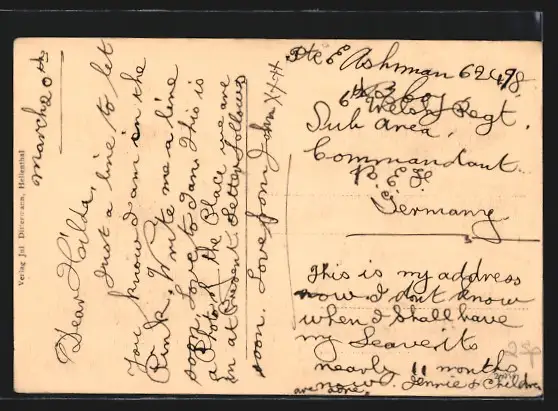 March 20th
Dear Hilda,
Just a line to let
you know I am in the
Pink. Write me a line
soon. Love to Jan. This is
a Photo of the Place we are
in at Present. Letter follows
soon. Love from John XXX
Pte E Ashman 62498
6th Welsh Regt.
Sub Area.
Commandant
B. E. F
Germany
This is my address
now. I dont know
when I shall have
my Leave its
nearly 11 months
now. Jennie & Children
are alone.
Verlag Jul Dittermann, Hellenthal